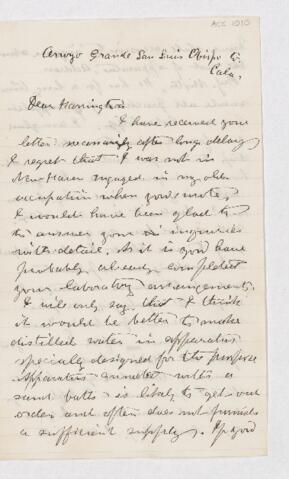 Acc 1910
Arroyo Grande San Luis Obispo Co.
Cala.
Dear Harrington
I have received your
letter necessarily after long delay
I regret that I was not in
New Haven engaged in my old
occupation when you wrote,
I would have been glad to
to answer your inquiries
with detail. As it is you have
probably already completed
your laboratory arrangements.
I will only say that I think
it would be better to make
distilled water in apparatus
specially designed for the purpose
Apparatus connected with a
sand bath is likely to get out
order and often does not furnish
a sufficient supply. If you